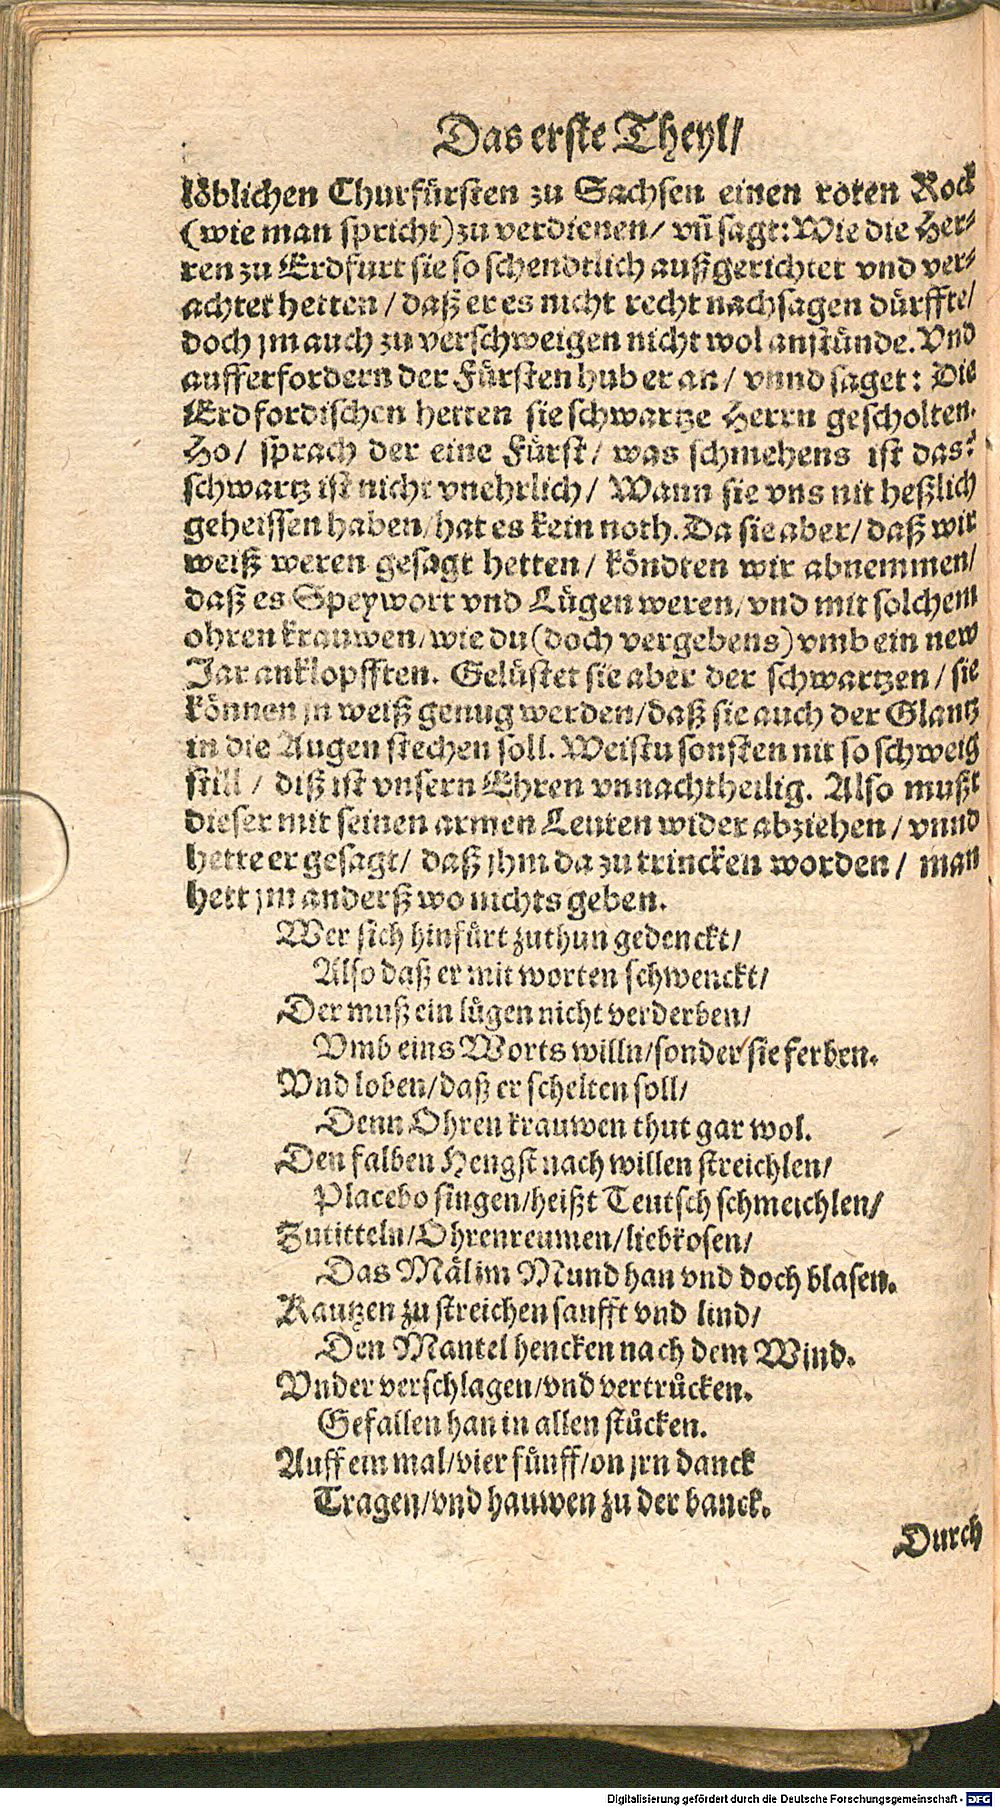 Das erste Theyl/
löblichen Churfürsten zu Sachsen einen roten Rock
(wie man spricht) zu verdienen/ vñ sagt: Wie die Her-
ren zu Erdfurt sie so schendtlich außgerichtet vnd ver-
achtet hetten/ daß er es nicht recht nachsagen dürffte/
doch jm auch zu verschweigen nicht wol anstünde. Vnd
aufferfordern der Fürsten hub er an/ vnnd saget: Die
Erdfordischen hetten sie schwartze Herrn gescholten.
Ho/ sprach der eine Fürst/ was schmehens ist das?
schwartz ist nicht vnehrlich/ Wann sie vns nit heßlich
geheissen haben/ hat es kein noth. Da sie aber/ daß wir
weiß weren gesagt hetten/ köndten wir abnemmen/
daß es Speywort vnd Lügen weren/ vnd mit solchem
ohren krauwen/ wie du (doch vergebens) vmb ein new
Jar anklopfften. Gelüstet sie aber der schwartzen/ sie
können jn weiß genug werden/ daß sie auch der Glantz
in die Augen stechen soll. Weistu sonsten nit so schweig
still/ diß ist vnsern Ehren vnnachtheilig. Also mußt
dieser mit seinen armen Leuten wider abziehen/ vnnd
hette er gesagt/ daß jhm da zu trincken worden/ man
hett jm anderßwo nichts geben.
Wer sich hinfürt zuthun gedenckt/
Also daß er mit worten schwenckt/
Der muß ein lügen nicht verderben/
Vmb eins Worts willn/ sonder sie ferben.
Vnd loben/ daß er schelten soll/
Denn Ohren krauwen thut gar wol.
Den falben Hengst nach willen streichlen/
Placebo singen/ heißt Teutsch schmeichlen/
Zutitteln/ Ohrenreumen/ liebkosen/
Das Mäl im Mund han vnd doch blasen.
Kautzen zu streichen saufft vnd lind/
Den Mantel hencken nach dem Wind.
Vnder verschlagen/ vnd vertrücken.
Gefallen han in allen stücken.
Auff ein mal/ vier fünff/ on jrn danck
Tragen/ vnd hauwen zu der banck.
Durch
Digitalisierung gefördert durch die Deutsche Forschungsgemeinschaft - DFG